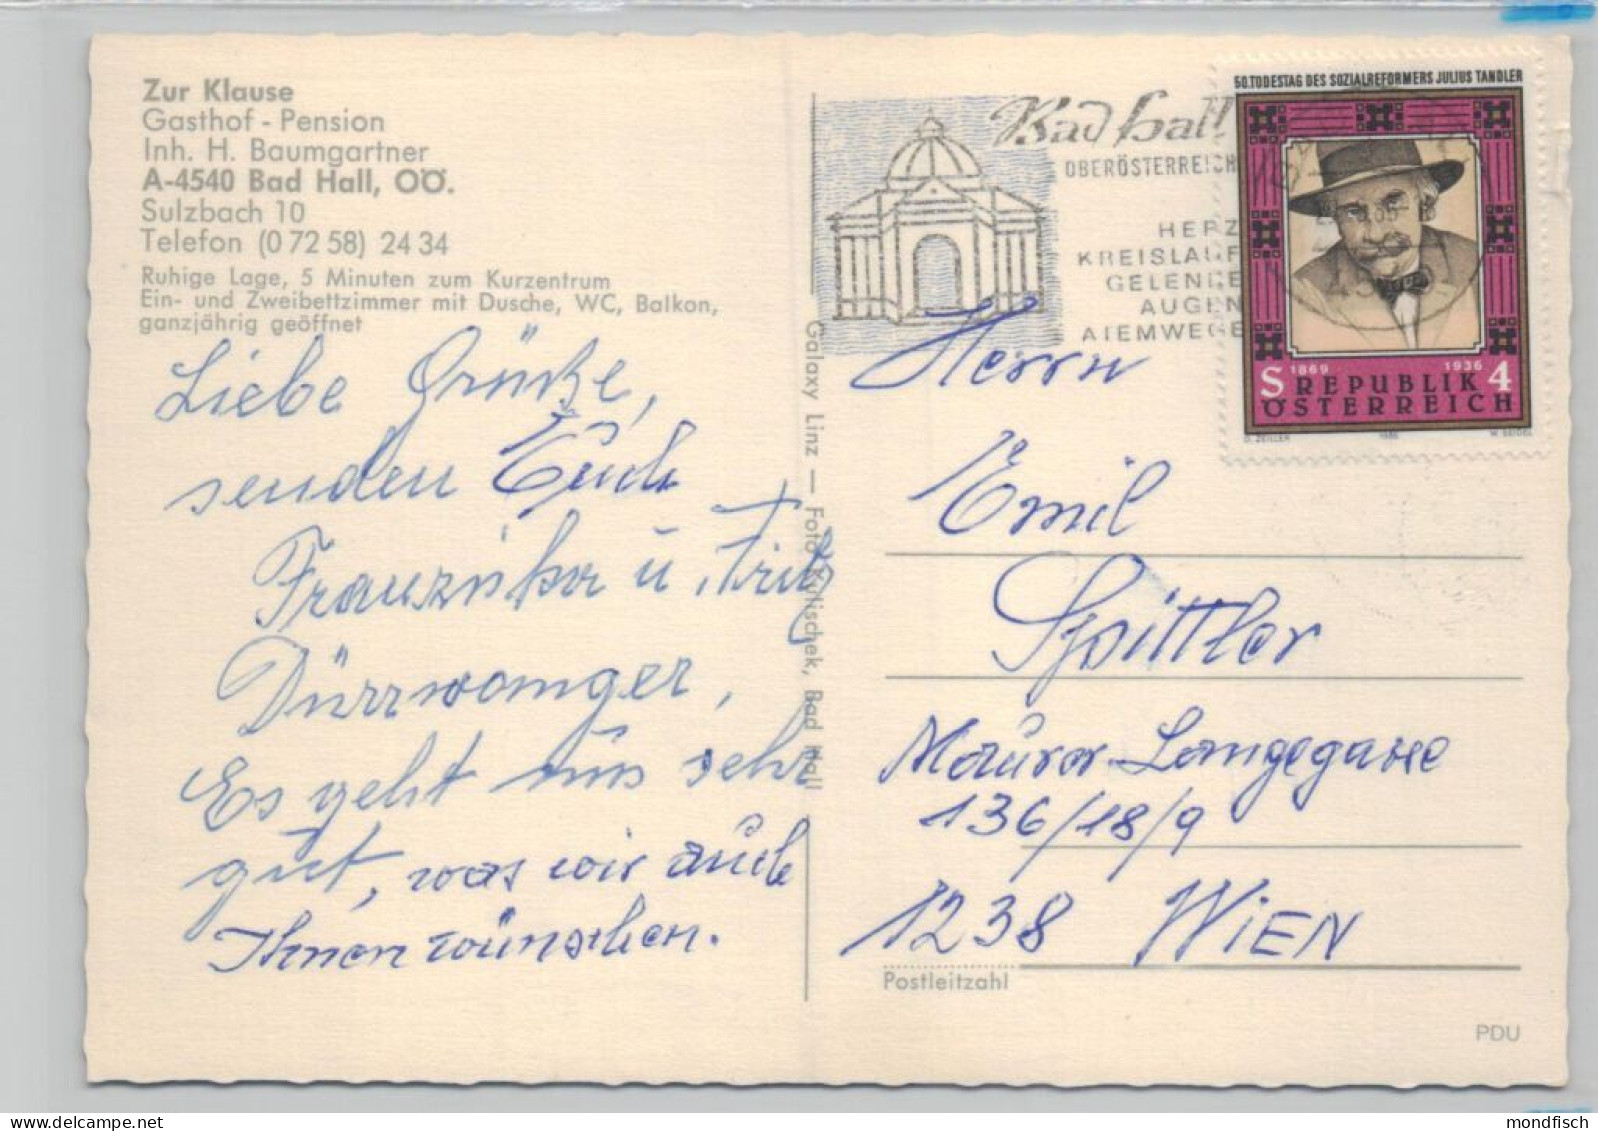 Zur Klause
Gasthof - Pension
Inh. H. Baumgartner
A-4540 Bad Hall, OÖ.
Sulzbach 10
Telefon (0 72 58) 24 34
Ruhige Lage, 5 Minuten zum Kurzentrum
Ein- und Zweibettzimmer mit Dusche, WC, Balkon,
ganzjährig geöffnet
Liebe Grüße,
senden Euch
Franziska u. Fritz
Dürrwanger,
Es geht uns sehr
gut, was wir auch
Ihnen wünschen.
Galaxy Linz — Foto Kulischek, Bad Hall
Bad Hall
OBERÖSTERREICH
HERZ
KREISLAUF
GELENKE
AUGEN
ATEMWEGE
50. TODESTAG DES SOZIALREFORMERS JULIUS TANDLER
1869 1936
S REPUBLIK 4
ÖSTERREICH
O. ZEILLER 1986 W. SEIDEL
Herrn
Emil
Spittler
Maurer-Langegasse
136/18/9
1238 WIEN
Postleitzahl
PDU
mondfisch